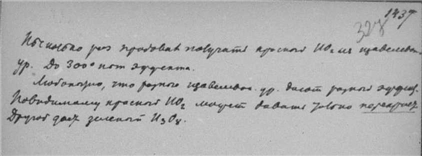 1937
328
Несколько раз пробовал получать красный UO₂ из щавелевок.
ур. До 300° нет эффекта.
Любопытно, что разные щавелевок. ур. дают разный эффект.
Повидимому красный UO₂ может давать только
Другой дает зеленый U₃O₈.